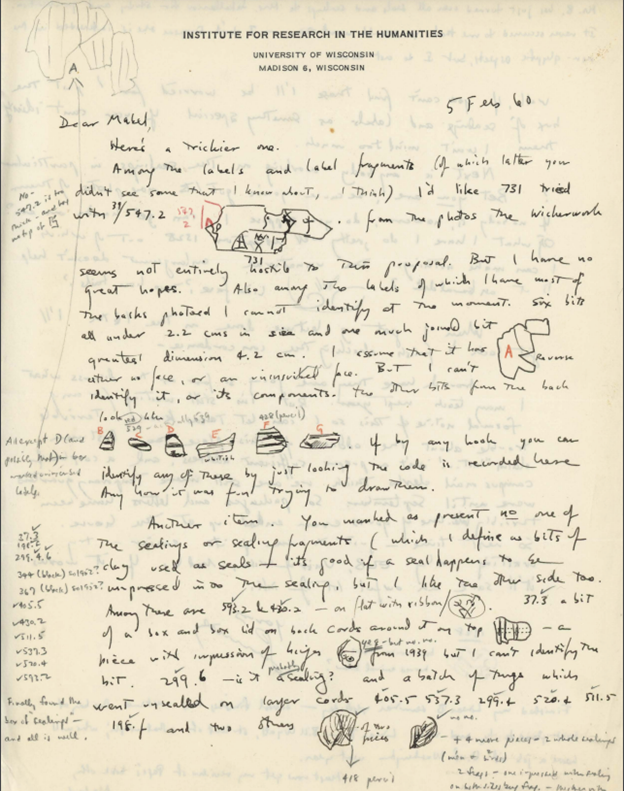 INSTITUTE FOR RESEARCH IN THE HUMANITIES
UNIVERSITY OF WISCONSIN
MADISON 6, WISCONSIN
A
5 Feb 60
Dear Mabel,
Here's a trickier one.
Among the labels and label fragments (of which latter you
didn't see some that I know about, I think) I'd like 731 tried
with 39/547.2
547.2
A
731
. From the photos the wickerwork
seems not entirely hostile to this proposal. But I have no
great hopes. Also among the labels of which I have most of
the backs photoed I cannot identify at the moment. six bits
all under 2.2 cms in size and one much joined bit
greatest dimension 4.2 cm. I assume that it has
A
Reverse
either no face, or an uninscribed face. But I can't
identify it, or its components. The other bits from the back
look
B C D E F G
If by any hook you can
identify any of these by just looking the code is recorded here
Any how it was fun trying to draw them.
Another item. You marked as present no one of
the sealings or sealing fragments (which I define as bits of
clay used as seals – it's good if a seal happens to be
impressed into the sealing, but I like the other side too.
Among these are 593.2 & 420.2 – on flat with ribbon
37.3 a bit
of a box and box lid on back cords around it on top
– a
piece with impression of
yes – but no no.
from 1939 but I can't identify the
bit. 299.6 – is it a sealing? and a batch of things which
probably
went unsealed on larger cords 405.5 537.3 299.4 520.4 511.5
198.1 and two strays
of two
pieces
no no.
418 pencil
299.4, 6
405.5
420.2
511.5
537.3
520.4
593.2
Finally found the
box of sealings –
and all is well.